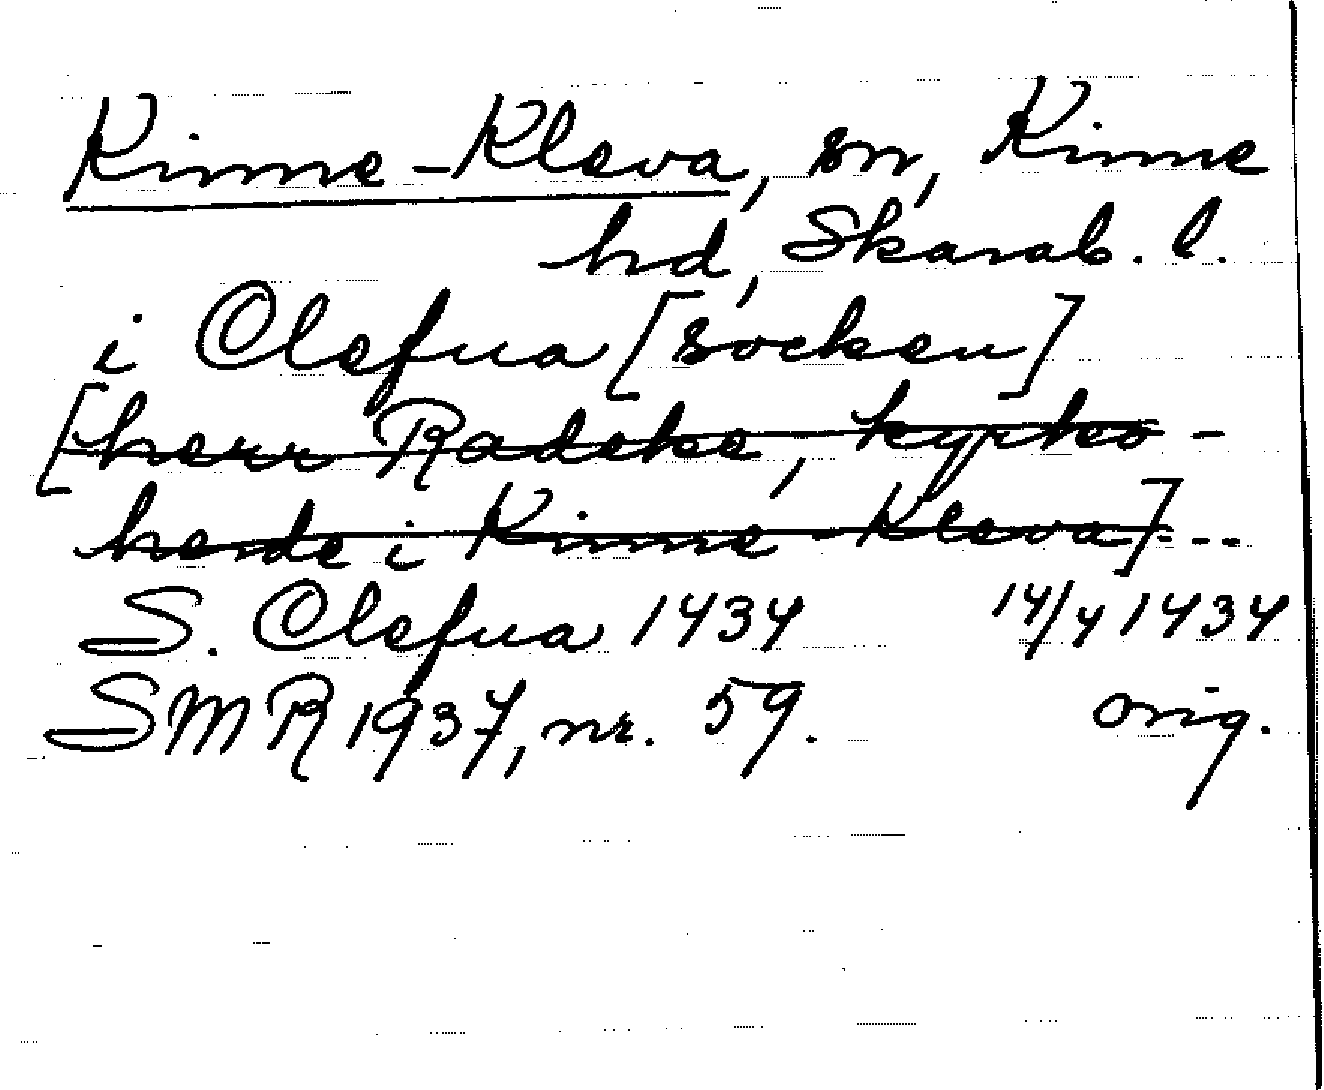 Kinne-Kleva, sn, Kinne
hd, Skarab. l.
i Clefua [socken]
[herr Radeke, kyrko-
herde i Kinne-Kleva]---
S. Clefua 1434 14/4 1434
SMR 1937, nr. 59. orig.